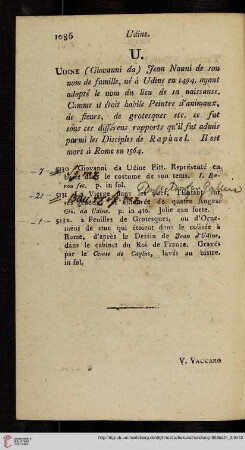 1086 Udine.
U.
UDINE (Giovanni da) Jean Nanni de son
nom de famille, né à Udine en 1494, ayant
adopté le nom du lieu de sa naissance.
Comme il étoit habile Peintre d'animaux,
de fleurs, de grotesques etc. ce fut
sous ces différens rapports qu'il fut admis
parmi les Disciples de Raphael. Il est
mort à Rome en 1564.
5130 Giovanni da Udine Pitt. Représenté en
le costume de son tems.
p. in fol.
5131 La Vierge dans les
de quatre Anges.
da Udine. p. in 4to. Jolie eau forte.
5132. 2 Feuilles de Grotesques, ou d'Orne-
mens de stuc qui étoient dans le colisée à
Rome, d'après le Dessin de Jean d'Udine,
dans le cabinet du Roi de France. Gravés
par le Comte de Caylus, lavés au bistre.
in fol.
V. VACCARO